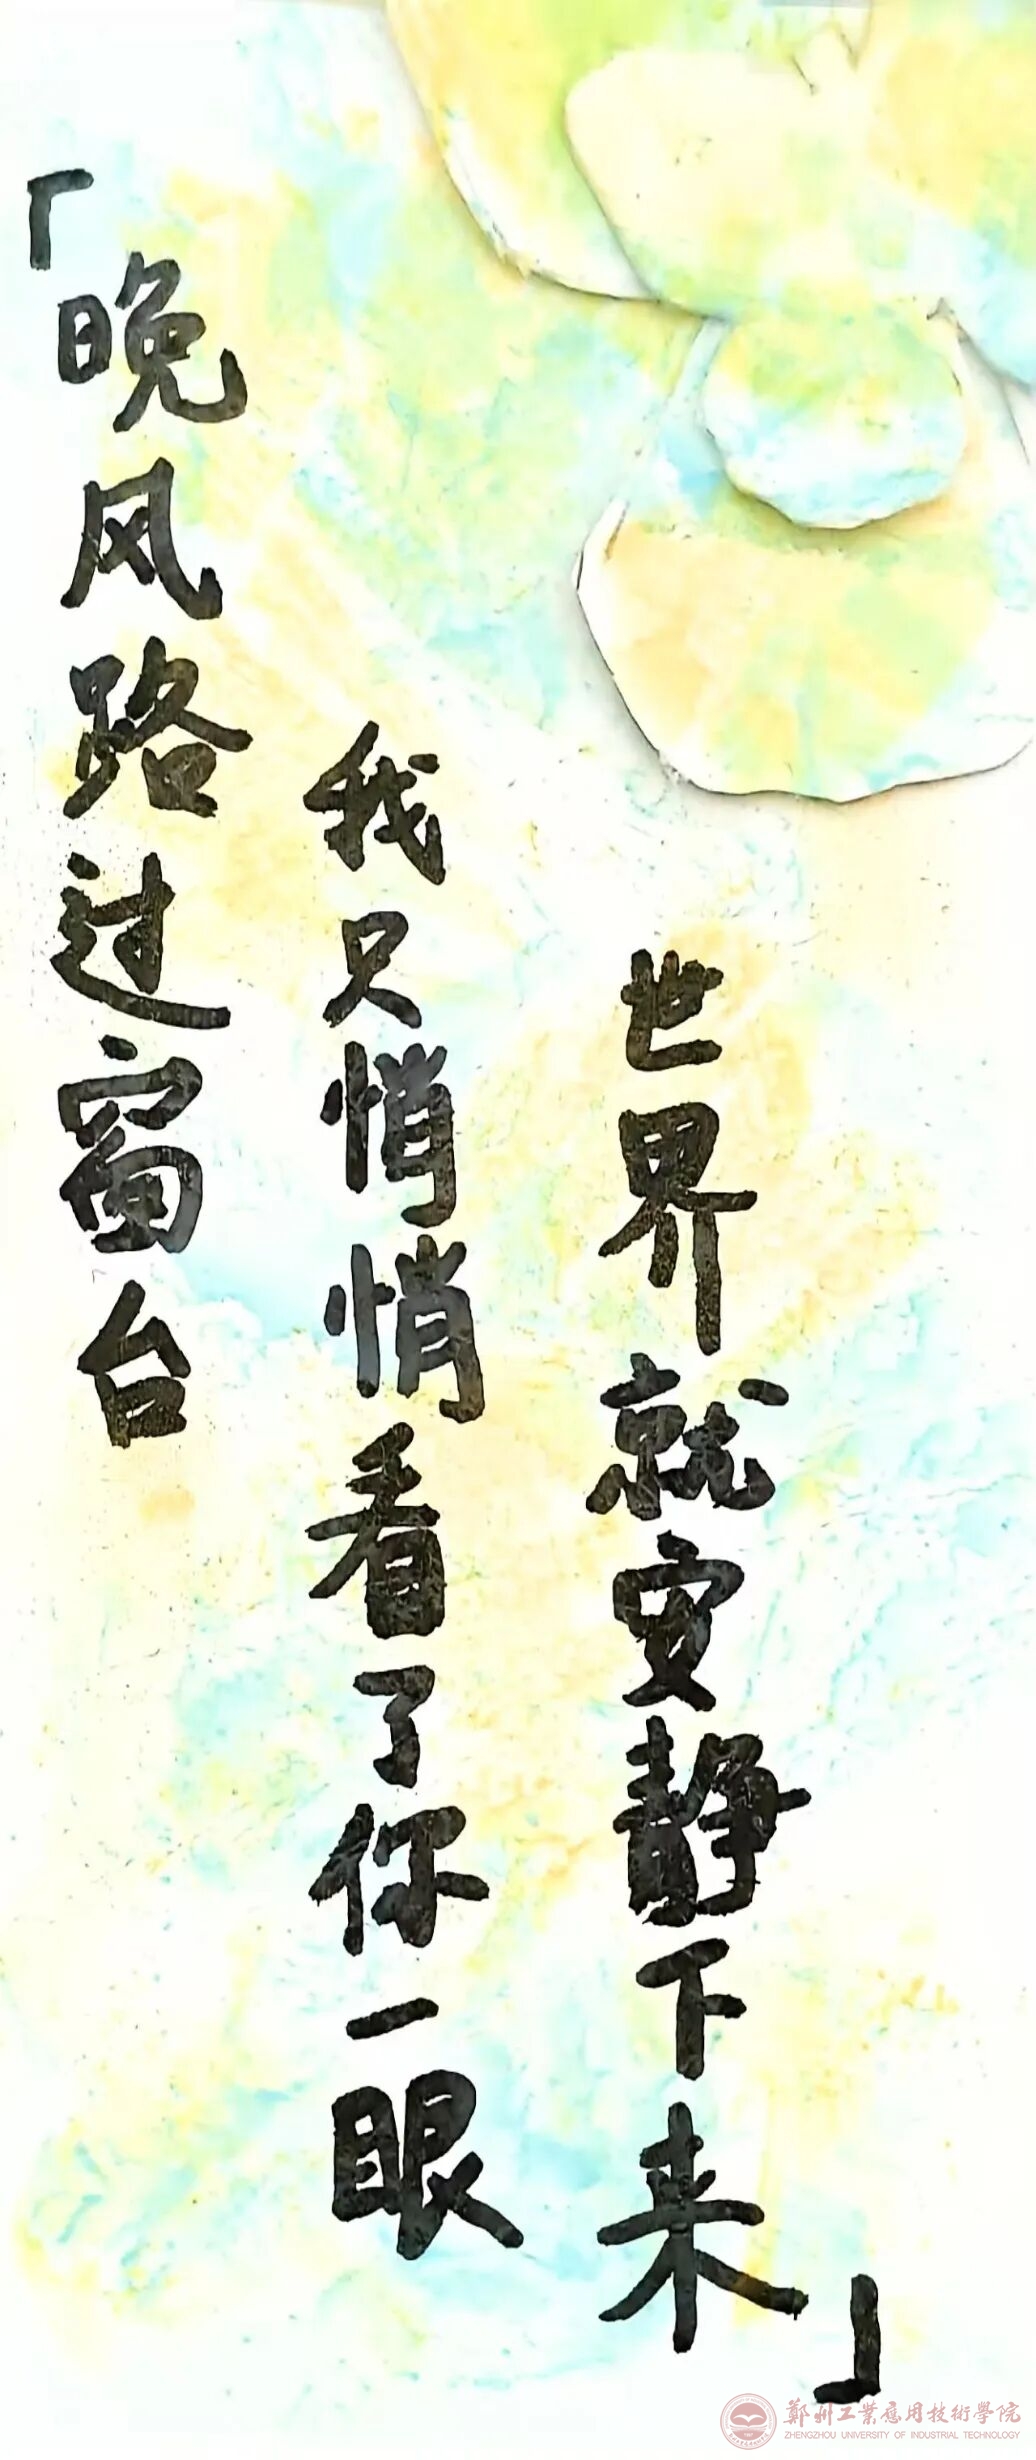 「晚风路过窗台
我只悄悄看了你一眼
世界就安静下来」
鄭州工業應用技術學院
ZHENGZHOU UNIVERSITY OF INDUSTRIAL TECHNOLOGY